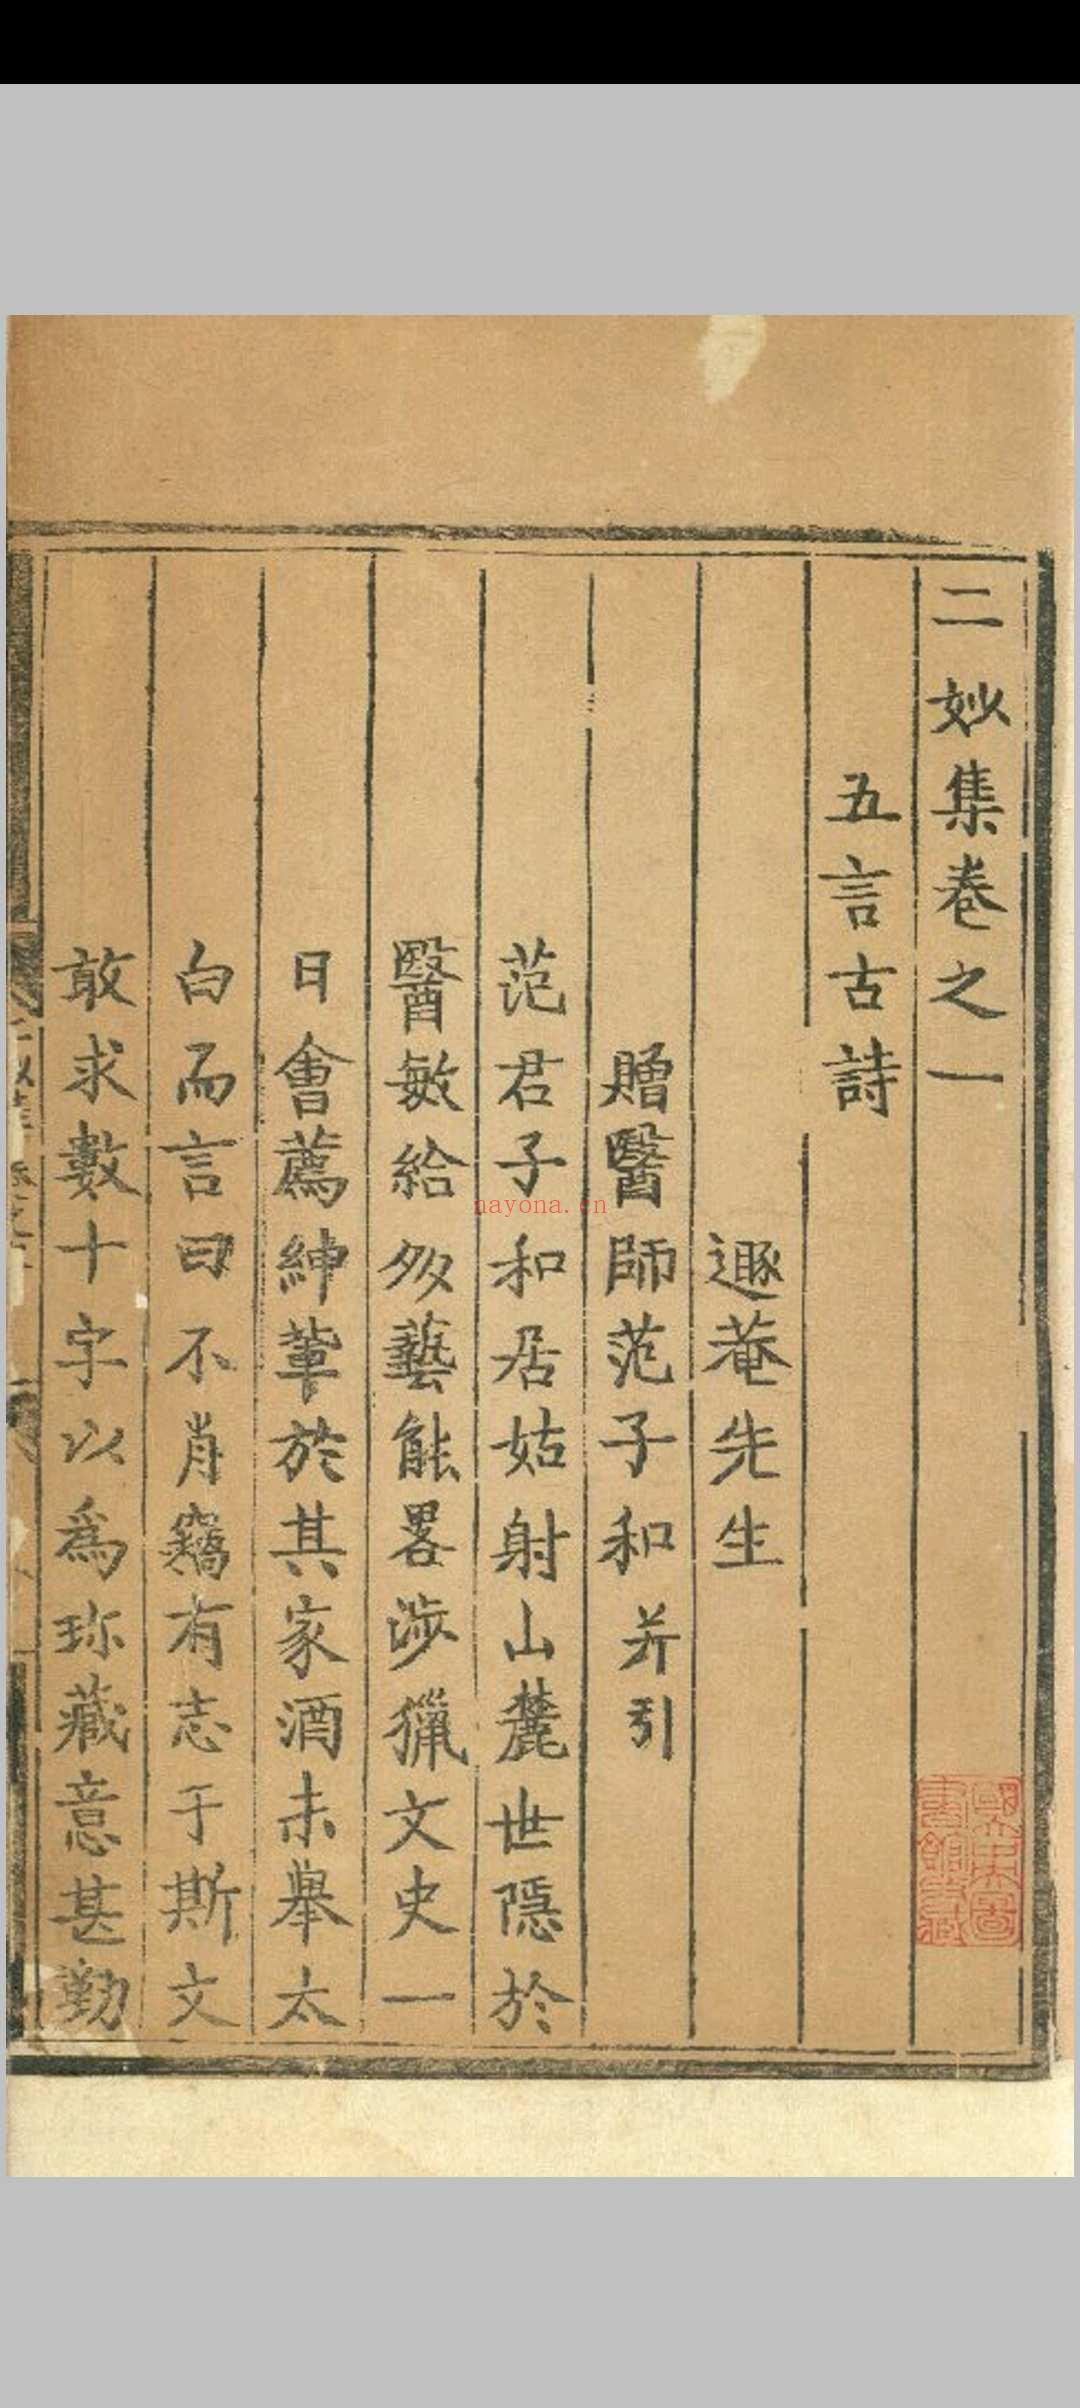 二妙集卷之一
五言古詩
遯菴先生
贈醫師范子和并引
范君子和居姑射山麓世隱於
醫敏給多藝能畧涉獵文史一
日會薦紳輩於其家酒未舉太
白而言曰不肖竊有志于斯文
敢求數十字以為珎藏意甚勤
nayona.cn